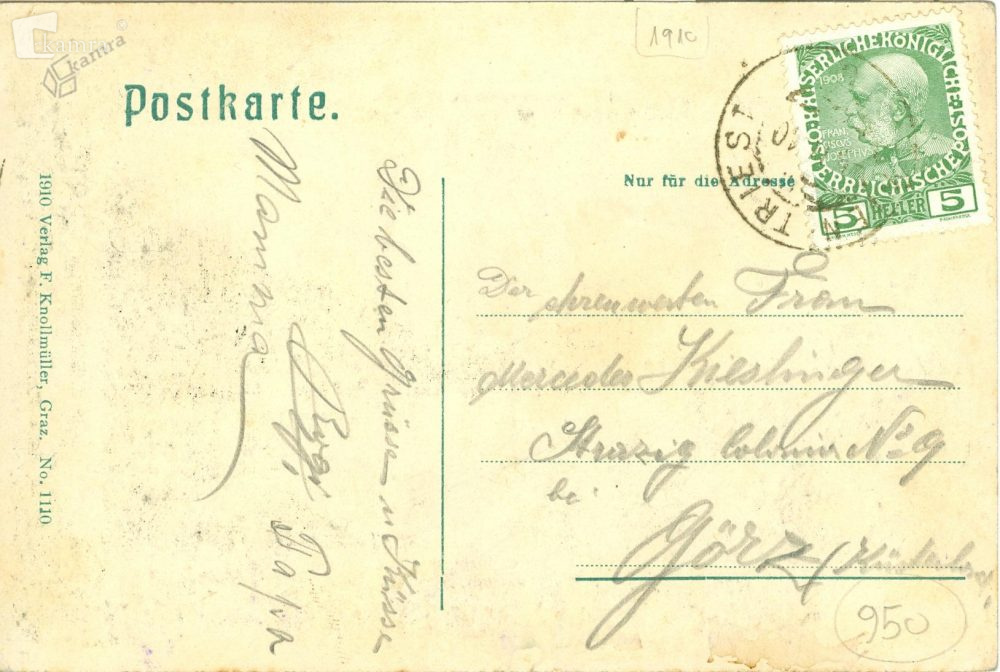 kamra
kamra
©
1910
Postkarte.
1910 Verlag F. Knollmüller, Graz. No. 1110
Die besten Grüsse u Küsse
Papa
Mamma
Nur für die Adresse
KAISERLICHE KÖNIGLICHE ÖSTERREICHISCHE POST
1908
FRAN
CISCVS
IOSEPHVS I
5 HELLER 5
TRIEST
Der ehrenwerten Frau
Mercedes Kieslinger
Strazig Colonie No 9
bei
Görz (Küstenland)
950